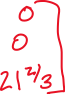 0
0
21 2/3